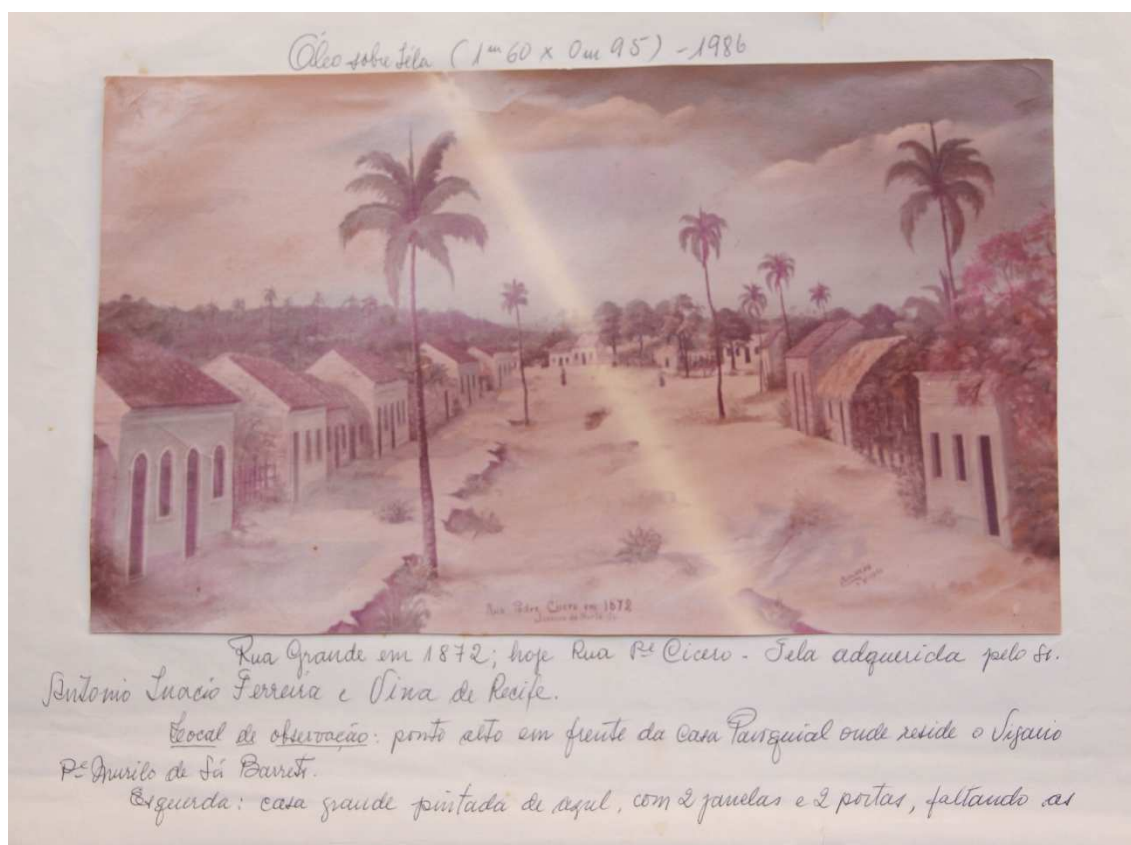 Óleo sobre téla (1m60 x 0m95) - 1986
Rua Padre Cicero em 1872
Rua Grande em 1872; hoje Rua Pe Cicero - Tela adquerida pelo Sr.
Antonio Inacio Ferreira e Vina de Recife.
Local de observação: ponto alto em frente da Casa Paroquial onde reside o Vigario
Pe Murilo de Sá Barreto.
Esquerda: casa grande pintada de azul, com 2 janelas e 2 portas, faltando as